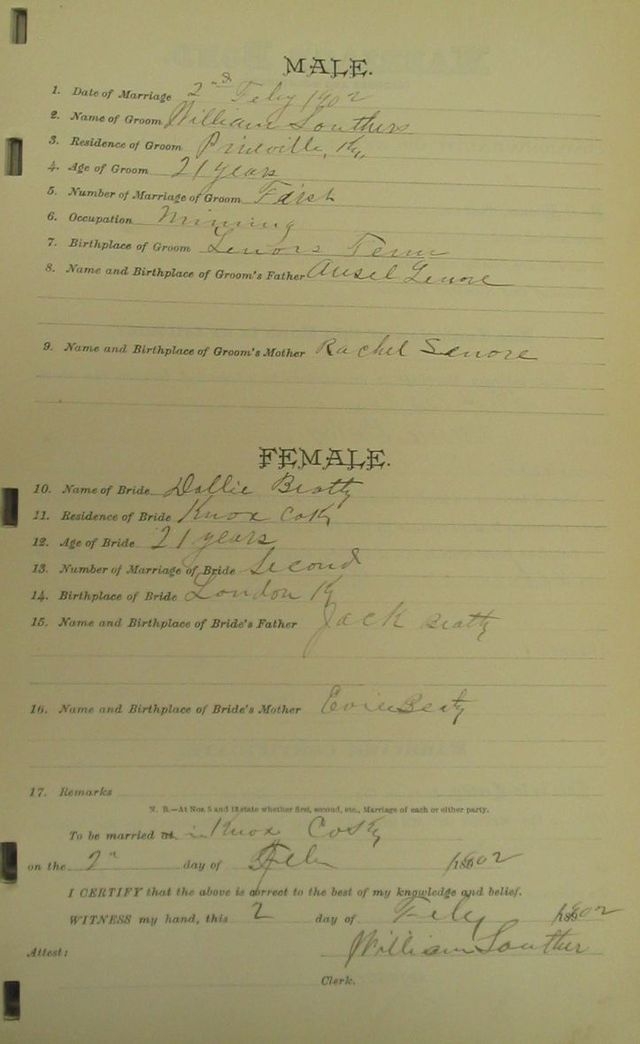 MALE.
1. Date of Marriage 2nd Feby 1902
2. Name of Groom William Southers
3. Residence of Groom Pineville, Ky,
4. Age of Groom 21 years
5. Number of Marriage of Groom First
6. Occupation Mining
7. Birthplace of Groom Lenors Tenn
8. Name and Birthplace of Groom's Father Ansel Lenore
9. Name and Birthplace of Groom's Mother Rachel Lenore
FEMALE.
10. Name of Bride Dollie Beatty
11. Residence of Bride Knox Co Ky
12. Age of Bride 21 years
13. Number of Marriage of Bride Second
14. Birthplace of Bride London Ky
15. Name and Birthplace of Bride's Father Jack Beatty
16. Name and Birthplace of Bride's Mother Beaty
17. Remarks
N. B.—At Nos. 5 and 13 state whether first, second, etc., Marriage of each or either party.
To be married at in Knox Co Ky
on the 2" day of Feb 1902
I CERTIFY that the above is correct to the best of my knowledge and belief.
WITNESS my hand, this 2 day of Feby 1902
William Souther
Attest:
Clerk.